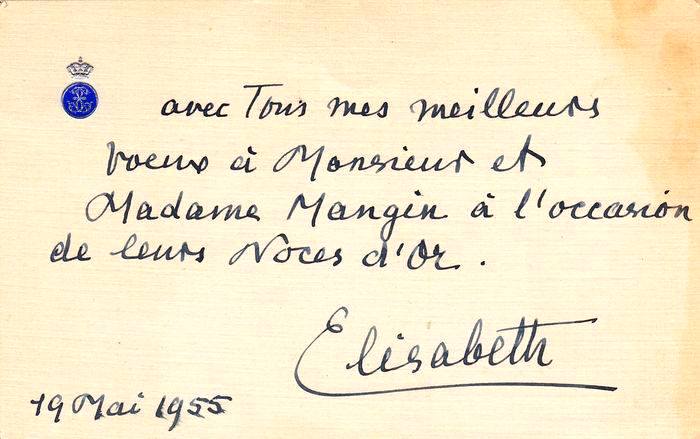 avec Tous mes meilleurs
voeux à Monsieur et
Madame Mangin à l'occasion
de leurs Noces d'Or.
Elisabeth
19 Mai 1955